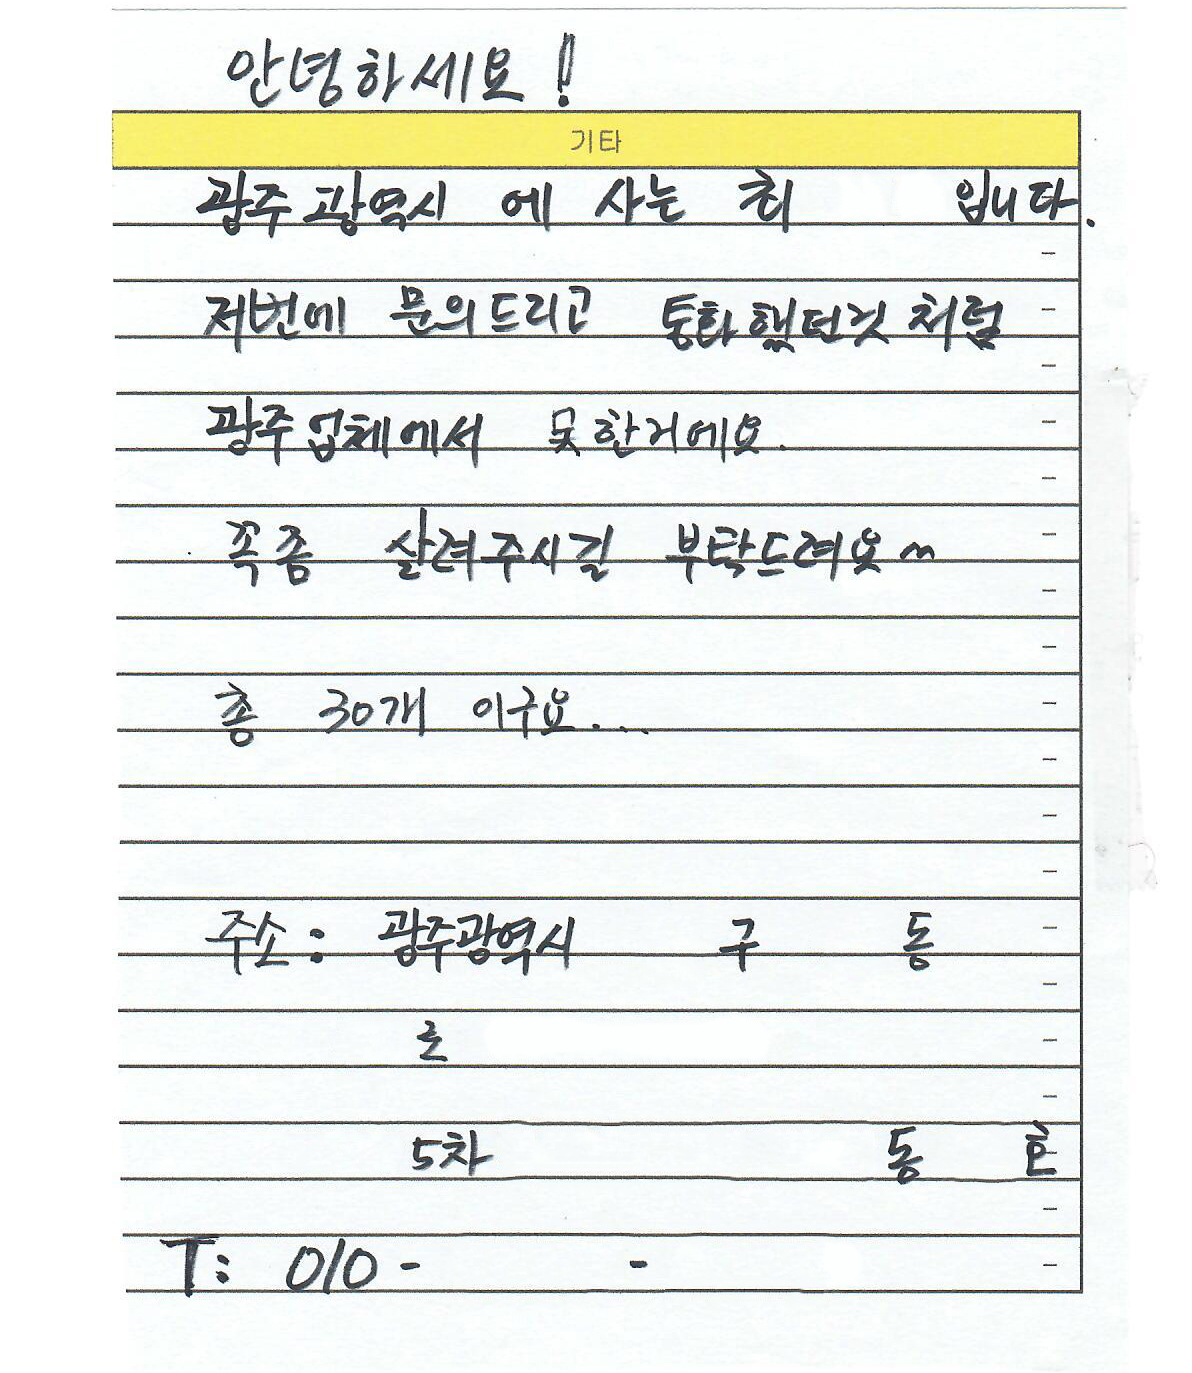 안녕하세요!
기타
광주광역시 에 사는 최 입니다.
저번에 문의드리고 통화했던것처럼
광주업체에서 못한거예요.
꼭좀 살려주시길 부탁드려욧~
총 30개 이구요...
주소: 광주광역시 구 동
로
5차 동 호
T: 010- -